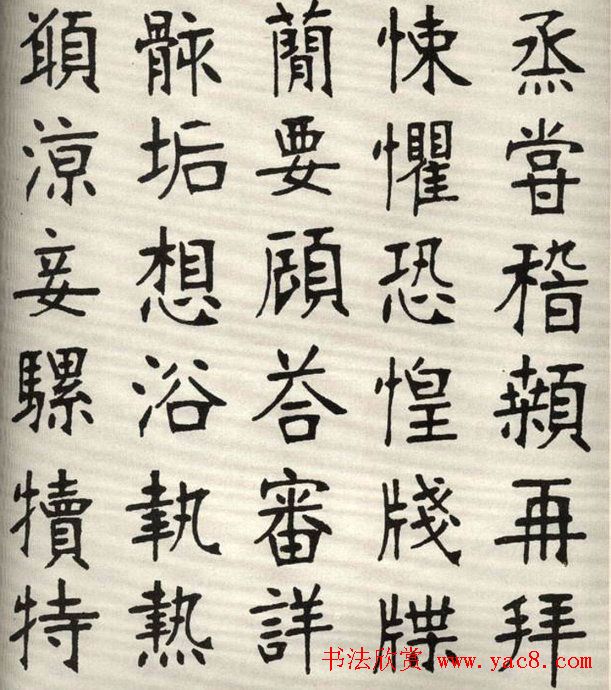 烝甞稽顙再拜
悚懼恐惶牋牒
蕳要顧荅審詳
骸垢想浴執熱
願涼妾騾犢特
书法欣赏 www.yac8.com